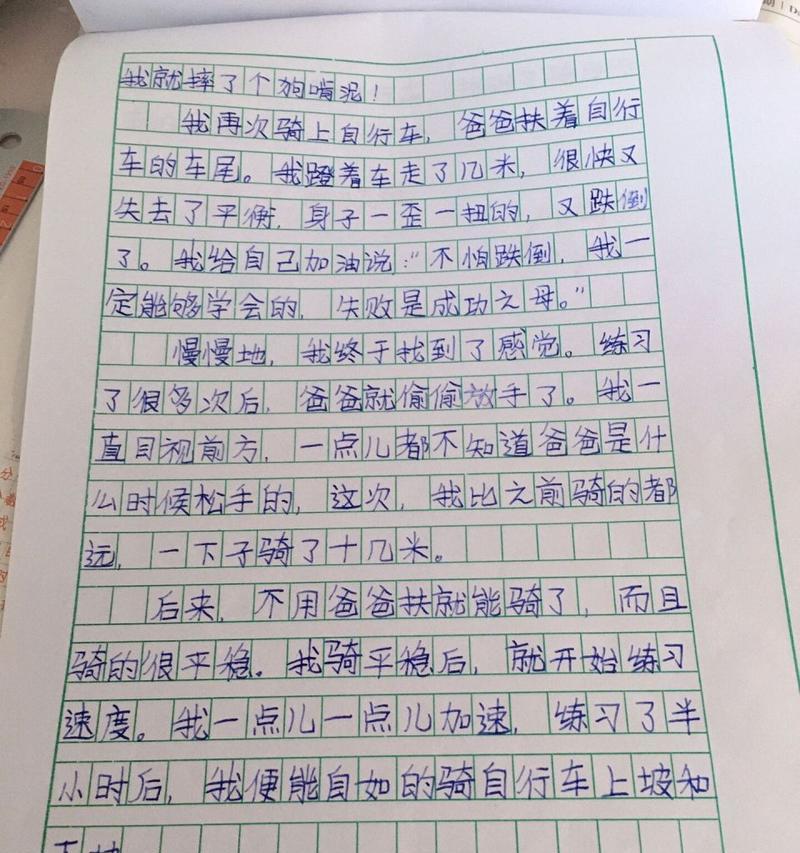 我就摔了个狗啃泥！
我再次骑上自行车，爸爸扶着自行
车的车尾。我蹬着车走了几米，很快又
失去了平衡，身子一歪一扭的，又跌倒
了。我给自己加油说：“不怕跌倒，我一
定能够学会的，失败是成功之母。”
慢慢地，我终于找到了感觉。练习
了很多次后，爸爸就偷偷放手了。我一
直目视前方，一点儿都不知道爸爸是什
么时候松手的，这次，我比之前骑的都
远，一下子骑了十几米。
后来，不用爸爸扶就能骑了，而且
骑的很平稳。我骑平稳后，就开始练习
速度。我一点儿一点儿加速，练习了半
小时后，我便能自如的骑自行车上坡和